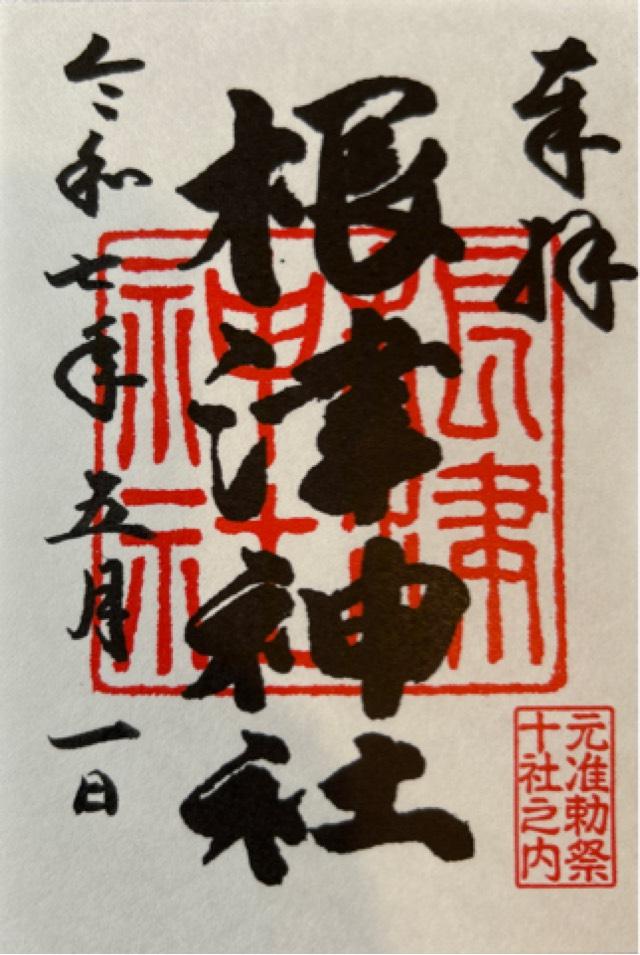 奉拜
根津神社
令和七年五月一日
根津神社
元准勅祭
十社之内